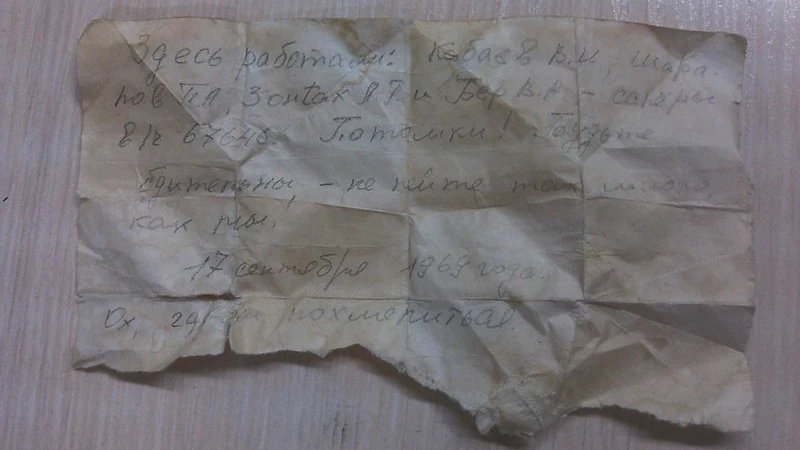 Здесь работали: Кобаев В.И, Шара-
пов П.А, Зонтах А Г и Бер В.А – сапёры
в/ч 67645. Потомки! Будьте
бдительны, – не пейте так много,
как мы.
17 сентября 1969 года.
Ох, похмелиться.